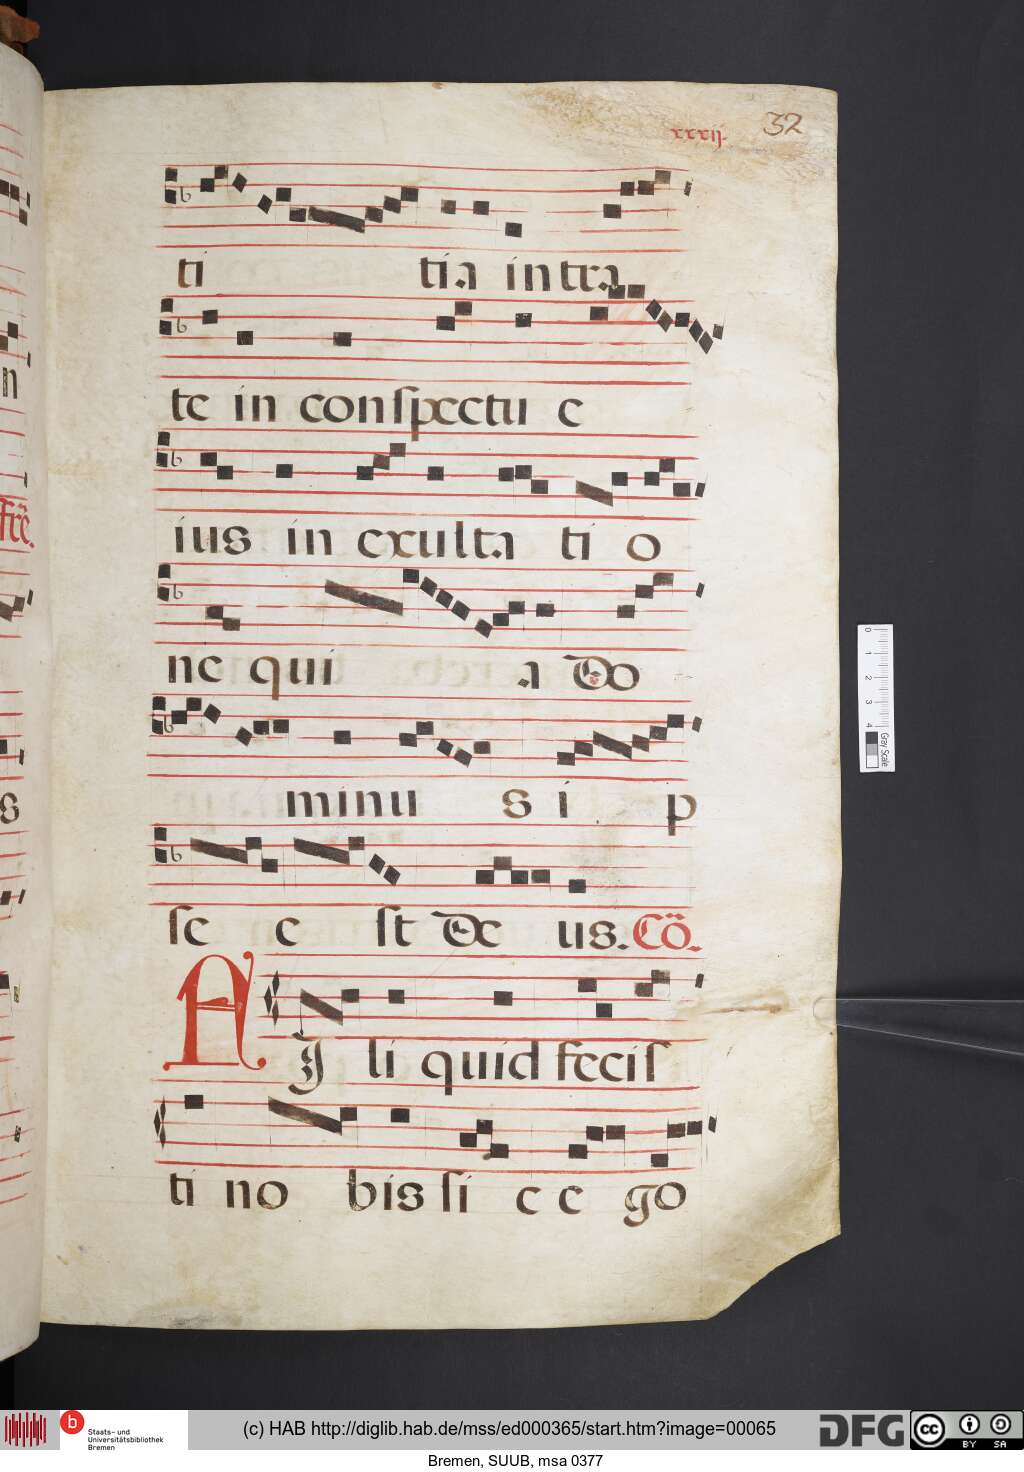 xxxij.
32
ti tia intra
te in conspectu e
ius in exulta ti o
ne qui a Do
minu s i p
se e st De us. Cō.
A
J li quid fecis
ti no bis si c e go
n
frē.
s
0 1 2 3 4
Gray Scale
b Staats- und
Universitätsbibliothek
Bremen
(c) HAB http://diglib.hab.de/mss/ed000365/start.htm?image=00065
DFG
cc BY SA
Bremen, SUUB, msa 0377